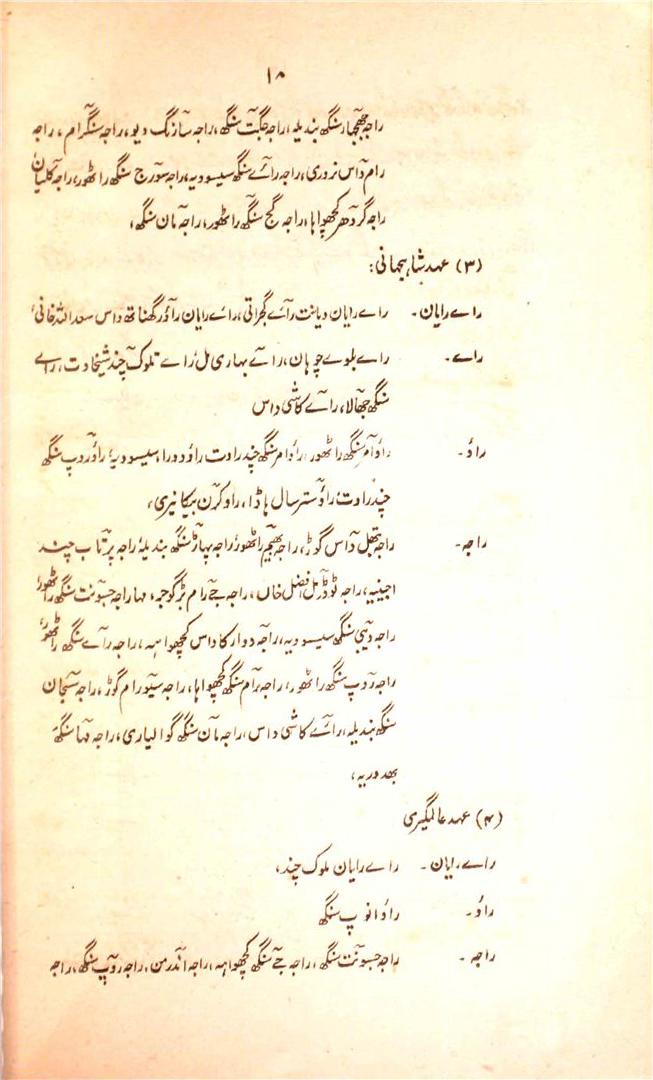 ۱۸
راجہ جھجہار سنگھ بندیلہ، راجہ جگت سنگھ، راجہ سارنگ دیو، راجہ سنگرام، راجہ
رام داس نروری، راجہ رائے سنگھ سیسودیہ، راجہ سورج سنگھ راٹھور، راجہ کلیان
راجہ گردھر کچھواہا، راجہ گج سنگھ راٹھور، راجہ مان سنگھ،
(۳) عہد شاہجہانی:
راے رایان۔ راے رایان دیانت رائے گجراتی، راے رایان راؤ رگھناتھ داس سعد اللہ خانی،
راے۔ راے بلوے چوہان، رائے بہاری مل، راے تلوک چند شیخاوت، راے
سنگھ جھالا، رائے کاشی داس
راؤ۔ راؤ امر سنگھ راٹھور، راؤ امر سنگھ چندراوت راؤ دودا، سیسودیہ، راؤ روپ سنگھ
چندراوت، راؤ ستر سال ہاڈا، راو کرن بیکانیری،
راجہ۔ راجہ بتھل داس گوڑ، راجہ بھیم راٹھور، راجہ پہاڑ سنگھ بندیلہ، راجہ پرتاب چند
اجینیہ، راجہ ٹوڈرمل افضل خاں، راجہ جے رام بڑگوجر، مہاراجہ جسونت سنگھ راٹھور،
راجہ دیبی سنگھ سیسودیہ، راجہ دوارکا داس کچھواہہ، راجہ رائے سنگھ راٹھور،
راجہ روپ سنگھ راٹھور، راجہ رام سنگھ کچھواہا، راجہ سیورام گوڑ، راجہ سبحان
سنگھ بندیلہ، رائے کاشی داس، راجہ مان سنگھ گوالیاری، راجہ مہا سنگھ
بھدوریہ،
(۴) عہد عالمگیری
راے رایان۔ راے رایان ملوک چند،
راؤ۔ راؤ انوپ سنگھ
راجہ۔ راجہ جسونت سنگھ، راجہ جے سنگھ کچھواہہ، راجہ اندرمن، راجہ روپ سنگھ، راجہ